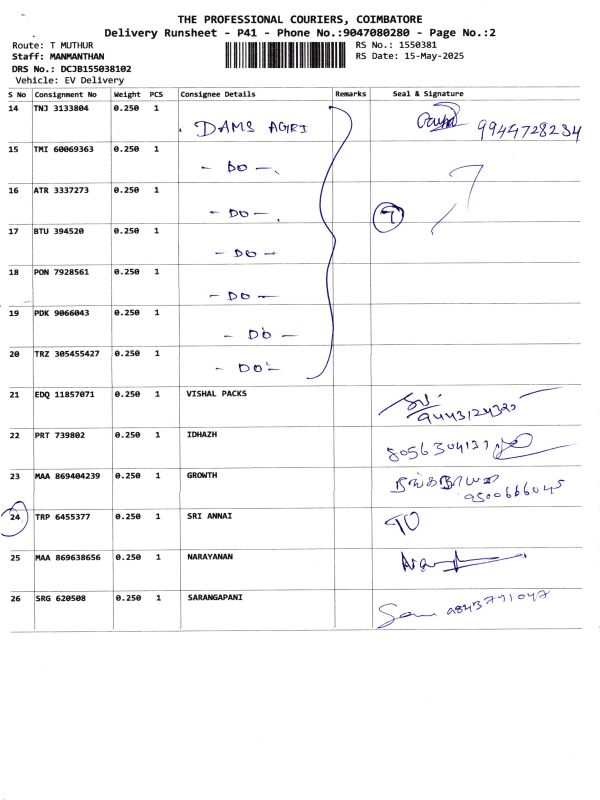 THE PROFESSIONAL COURIERS, COIMBATORE
Delivery Runsheet - P41 - Phone No.:9047080280 - Page No.:2
Route: T MUTHUR RS No.: 1550381
Staff: MANMANTHAN RS Date: 15-May-2025
DRS No.: DCJB155038102
Vehicle: EV Delivery
S No Consignment No Weight PCS Consignee Details Remarks Seal & Signature
14 TNJ 3133804 0.250 1 DAMS AGRI 9944728234
15 TMI 60069363 0.250 1 - DO -
16 ATR 3337273 0.250 1 - DO - 7
17 BTU 394520 0.250 1 - DO -
18 PON 7928561 0.250 1 - DO -
19 PDK 9066043 0.250 1 - DO -
20 TRZ 305455427 0.250 1 - DO -
21 EDQ 11857071 0.250 1 VISHAL PACKS
22 PRT 739802 0.250 1 IDHAZH 8056304131
23 MAA 869404239 0.250 1 GROWTH
9500666045
24 TRP 6455377 0.250 1 SRI ANNAI TO
25 MAA 869638656 0.250 1 NARAYANAN
26 SRG 620508 0.250 1 SARANGAPANI 9843791047